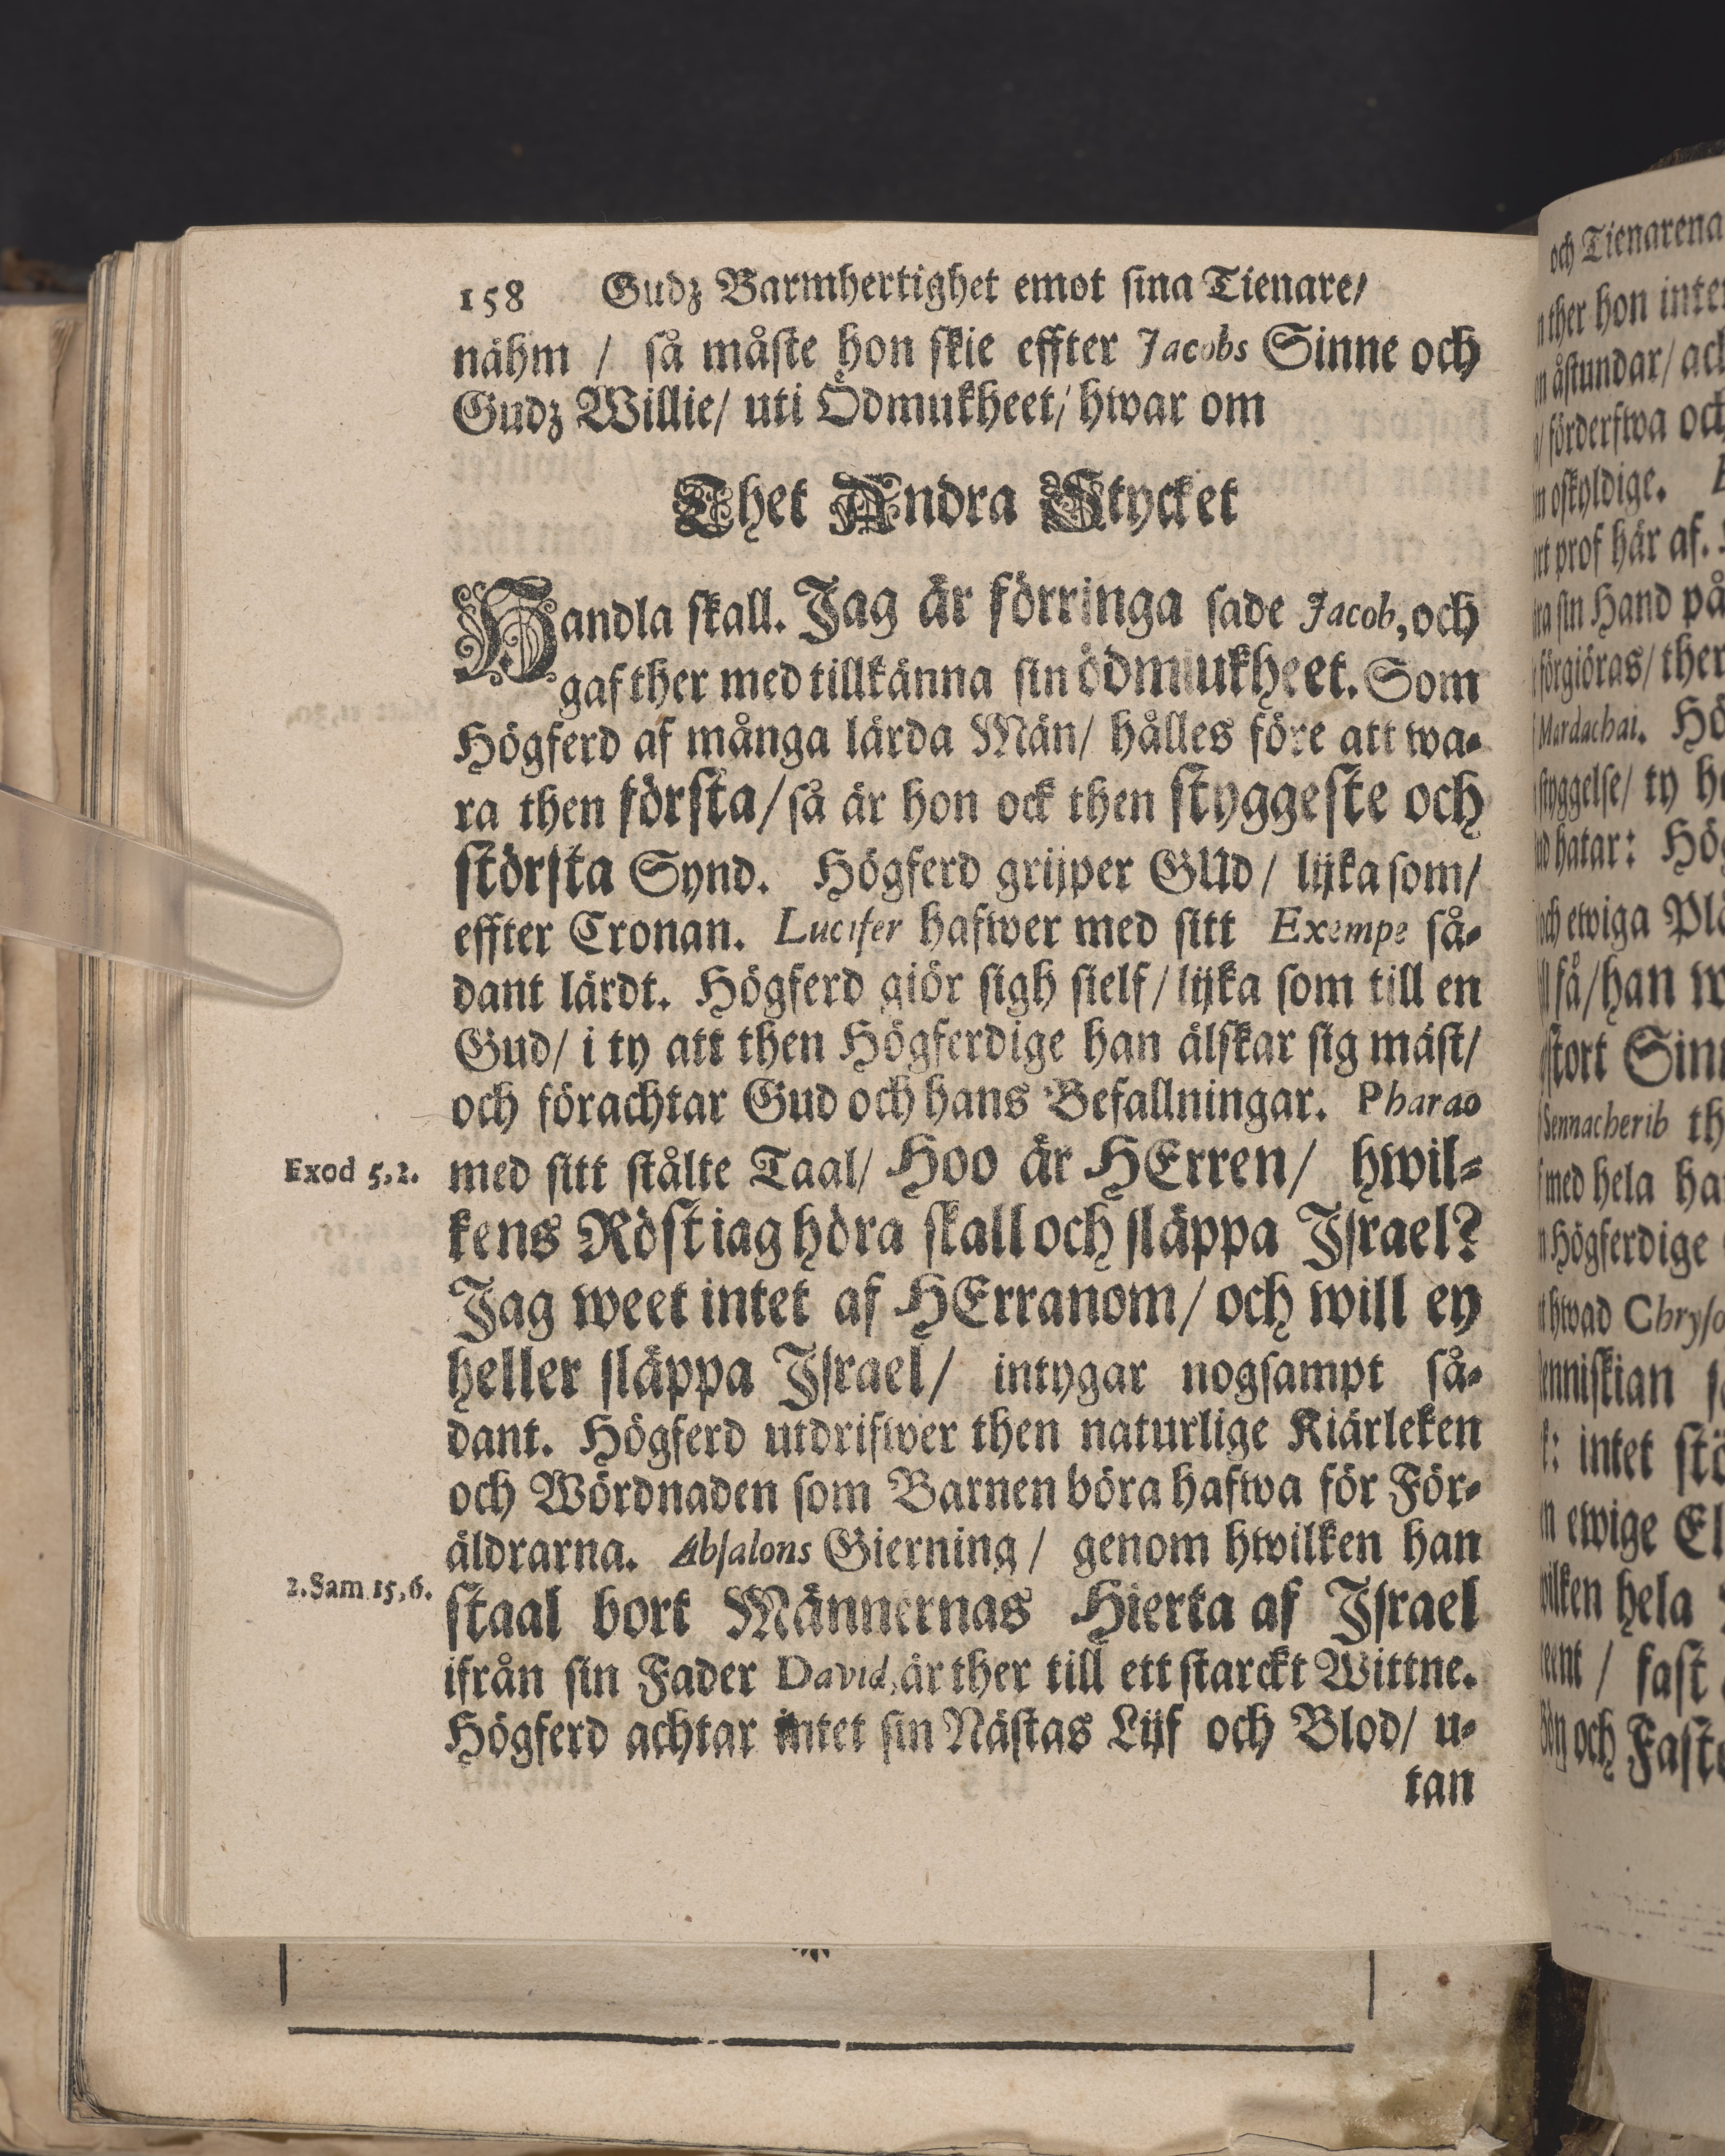 158 Gudz Barmhertighet emot sina Tienare/
nähm / så måste hon skie effter Jacobs Sinne och
Gudz Willie/ uti Ödmukheet/ hwar om
Thet Andra Stycket
Handla skall. Jag är förringa sade Jacob, och
gaf ther med tillkänna sin ödmiukheet. Som
Högferd af många lärda Män/ hålles före att wa-
ra then första/ så är hon ock then styggeste och
största Synd. Högferd grijper GUd/ lijka som/
effter Cronan. Lucifer hafwer med sitt Exempe så-
dant lärdt. Högferd giör sigh sielf/ lijka som till en
Gud/ i ty att then Högferdige han älskar sig mäst/
och förachtar Gud och hans Befallningar. Pharao
Exod 5,2. med sitt stålte Taal/ Hoo är HErren/ hwil-
kens Röst iag höra skall och släppa Israel?
Jag weet intet af HErranom/ och will ey
heller släppa Israel/ intygar nogsampt så-
dant. Högferd utdrifwer then naturlige Kiärleken
och Wördnaden som Barnen böra hafwa för För-
äldrarna. Absalons Gierning / genom hwilken han
2. Sam 15,6. staal bort Männernas Hierta af Israel
ifrån sin Fader David, är ther till ett starckt Wittne.
Högferd achtar intet sin Nästas Lijf och Blod/ u-
tan
och Tienarena
ther hon inte
åstundar/
förderfwa och
oskyldige.
prof här af.
sin Hand på
förgiöras/ ther
Mardachai. Hö
styggelse/ ty
hatar: Hög
och ewiga
få/ han
stort Sin
Sennacherib th
med hela
Högferdige
hwad Chryso
intet
ewige
hela
/ fast
och Faste